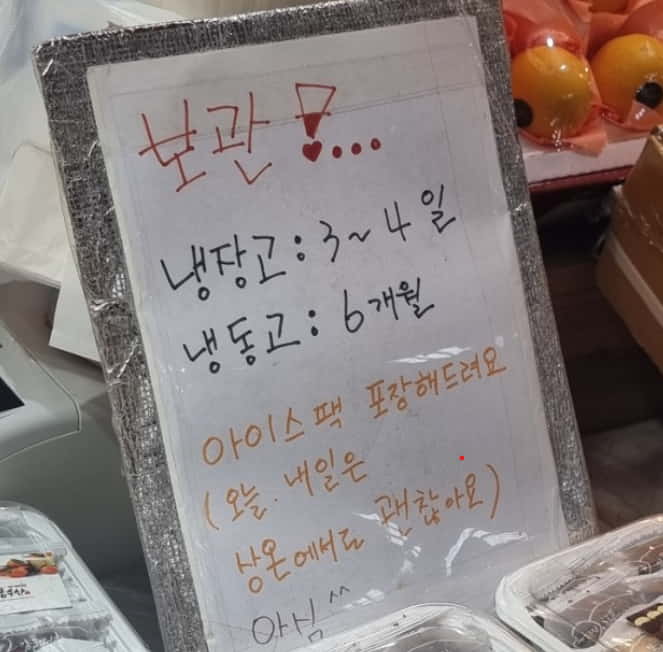 보관 !...
냉장고: 3~4일
냉동고: 6개월
아이스팩 포장해드려요
(오늘. 내일은
상온에서도 괜찮아요)
아심^^